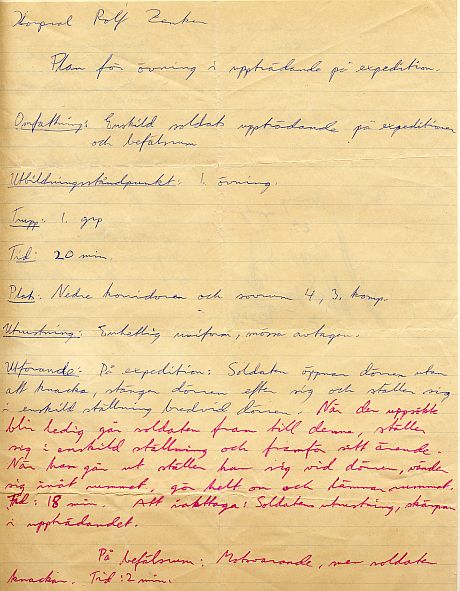 Korpral Rolf Zenker
Plan för övning i uppträdande på expedition.
Omfattning: Enskild soldats uppträdande på expeditioner
och befälsrum
Utbildningsståndpunkt: 1. övning.
Trupp: 1. grp
Tid: 20 min.
Plats: Nedre korridoren och sovrum 4, 3. komp.
Utrustning: Enhetlig uniform, mössa avtagen.
Utförande: På expedition: Soldaten öppnar dörren utan
att knacka, stänger dörren efter sig och ställer sig
i enskild ställning bredvid dörren. När den uppsökte
blir ledig går soldaten fram till denne, ställer
sig i enskild ställning och framför sitt ärende.
När han går ut ställer han sig vid dörren, vänder
sig inåt rummet, gör helt om och lämnar rummet.
Tid: 18 min. Att iakttaga: Soldatens utrustning, skärpan
i uppträdandet.
På befälsrum: Motsvarande, men soldaten
knackar. Tid: 2 min.